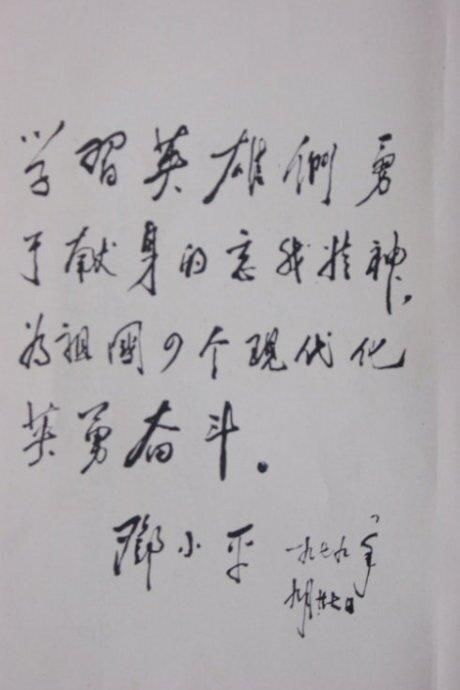 学習英雄們勇
于献身的忘我精神,
为祖國四个現代化
英勇奋斗。
鄧小平 一九七九年
九月廿七日